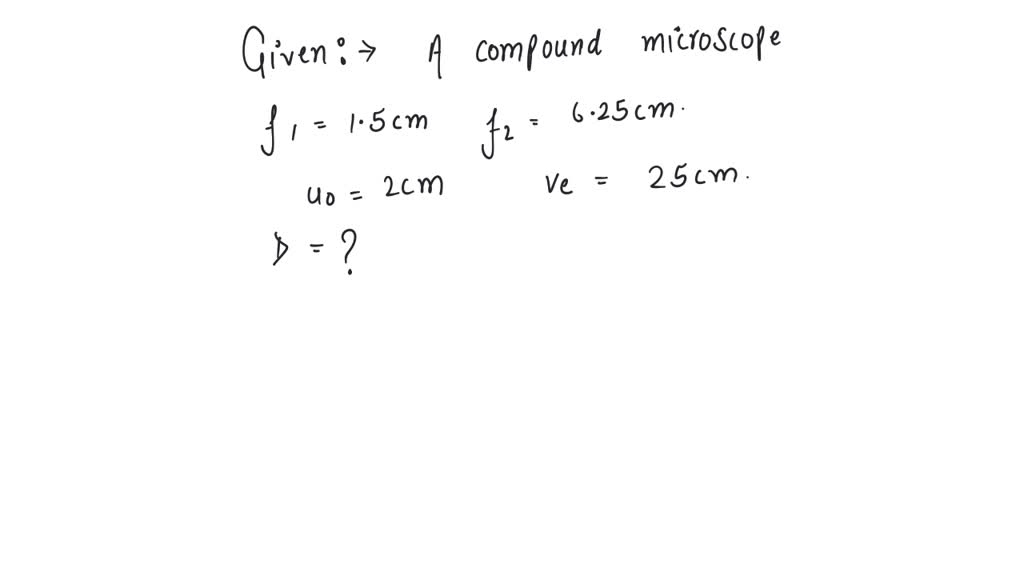 Given:→ A compound microscope
f1 = 1.5cm f2 = 6.25cm.
uo = 2cm ve = 25cm.
D = ?